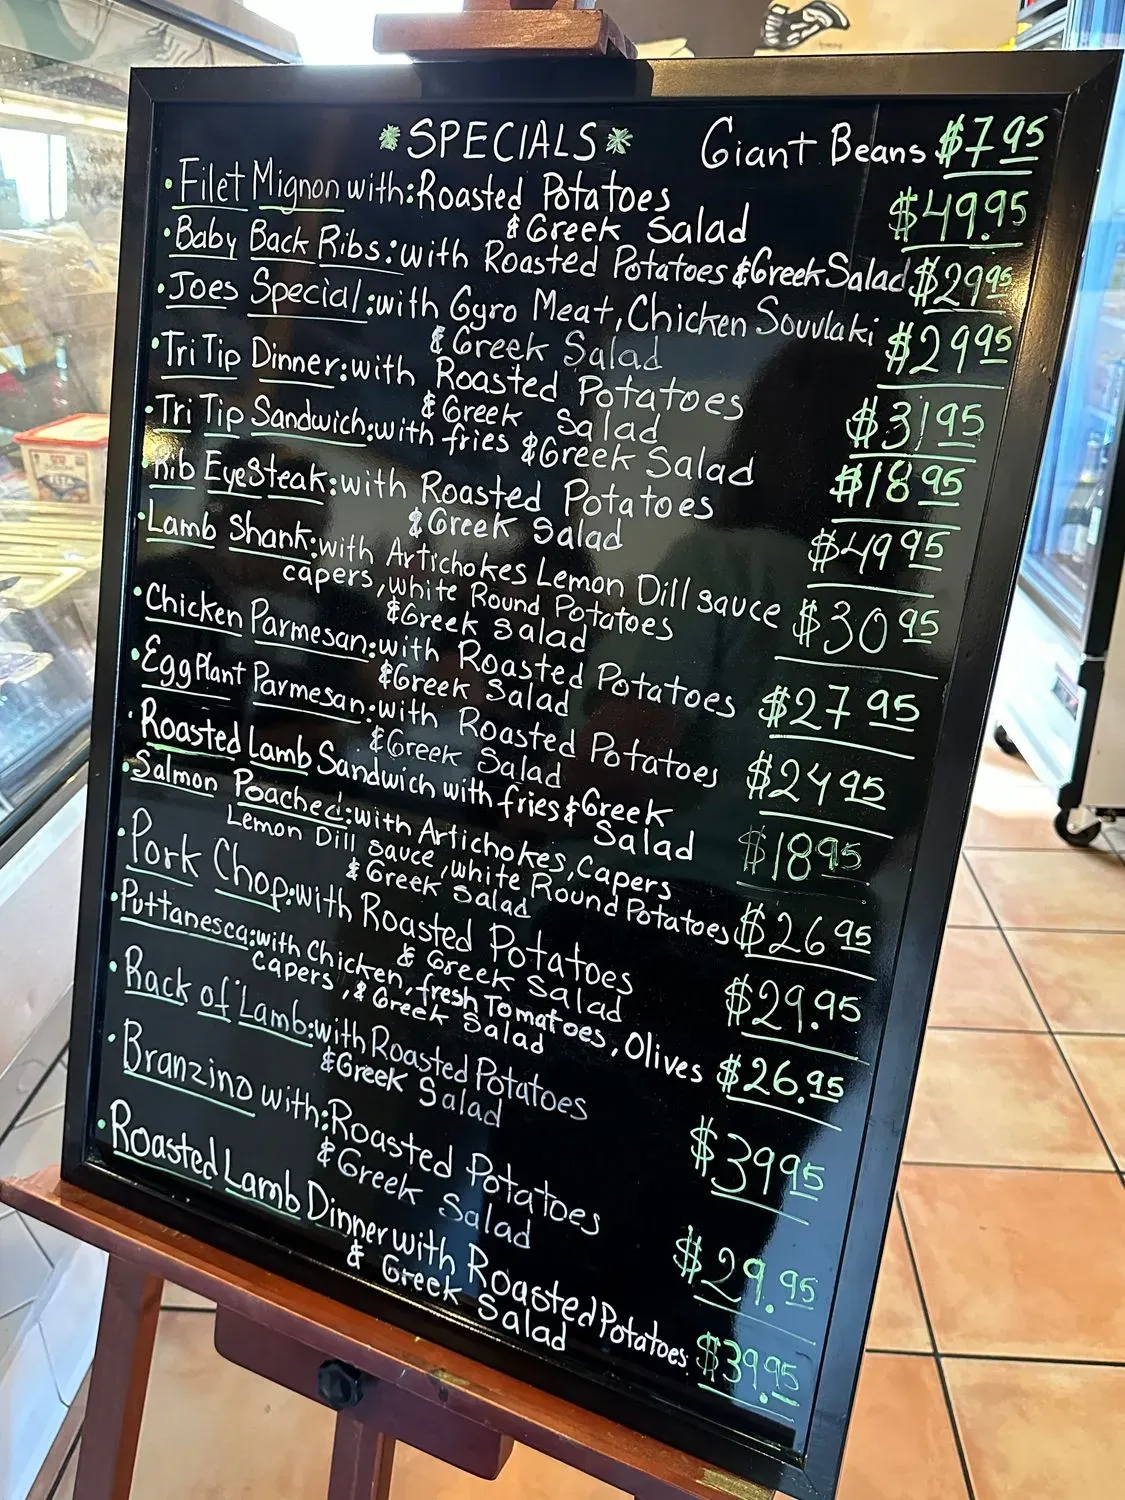 *SPECIALS* Giant Beans $7.95
• Filet Mignon with: Roasted Potatoes $49.95
& Greek Salad
• Baby Back Ribs: with Roasted Potatoes & Greek Salad $29.95
• Joes Special: with Gyro Meat, Chicken Souvlaki $29.95
& Greek Salad
• Tri Tip Dinner: with Roasted Potatoes $31.95
& Greek Salad
• Tri Tip Sandwich: with fries & Greek Salad $18.95
• Rib Eye Steak: with Roasted Potatoes $49.95
& Greek Salad
• Lamb Shank: with Artichokes Lemon Dill sauce $30.95
capers, white Round Potatoes
& Greek Salad
• Chicken Parmesan: with Roasted Potatoes $27.95
& Greek Salad
• Egg Plant Parmesan: with Roasted Potatoes $24.95
& Greek Salad
• Roasted Lamb Sandwich with fries & Greek
Salad $18.95
• Salmon Poached: with Artichokes, Capers
Lemon Dill sauce, white Round Potatoes $26.95
& Greek Salad
• Pork Chop: with Roasted Potatoes $29.95
& Greek Salad
• Puttanesca: with Chicken, fresh Tomatoes, Olives $26.95
capers, & Greek Salad
• Rack of Lamb: with Roasted Potatoes $39.95
& Greek Salad
• Branzino with: Roasted Potatoes $29.95
& Greek Salad
• Roasted Lamb Dinner with Roasted Potatoes $39.95
& Greek Salad